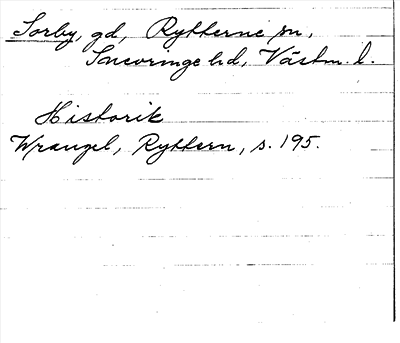 Sorby, gd, Rytterne sn,
Snevringe hd, Västm. l.
Historik
Wrangel, Ryttern, s. 195.